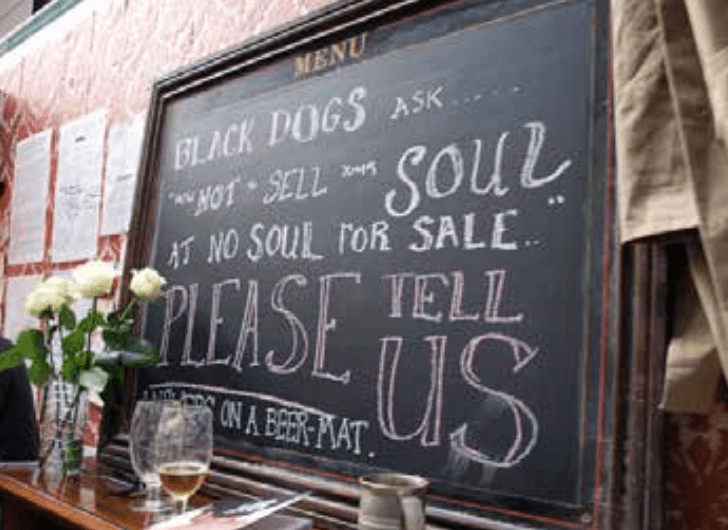 MENU
BLACK DOGS ASK.....
NOT SELL SOUL
AT NO SOUL FOR SALE.."
PLEASE TELL
US
ON A BEER-MAT.